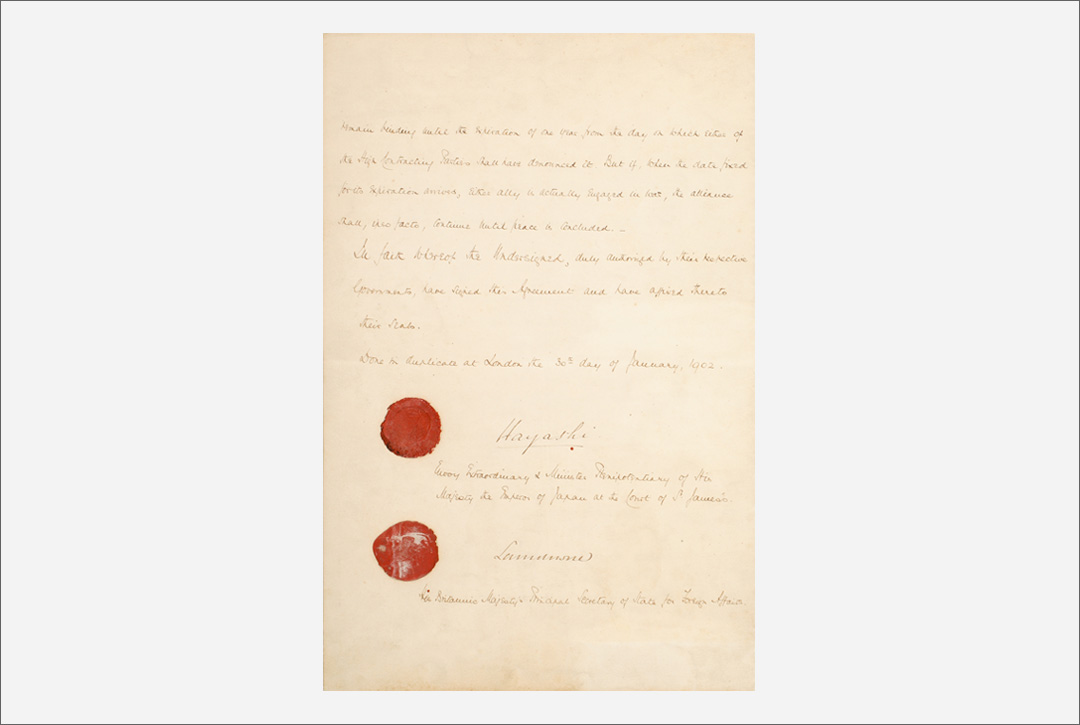 remain binding until the expiration of one year from the day on which either of
the High Contracting Parties shall have denounced it. But if, when the date fixed
for its expiration arrives, either ally is actually engaged in war, the alliance
shall, ipso facto, continue until peace is concluded. –
In faith whereof the Undersigned, duly authorized by their respective
Governments, have signed this Agreement and have affixed thereto
their Seals.
Done in duplicate at London the 30th day of January, 1902.
Hayashi
Envoy Extraordinary & Minister Plenipotentiary of His
Majesty the Emperor of Japan at the Court of St James's.
Lansdowne
His Britannic Majesty's Principal Secretary of State for Foreign Affairs.